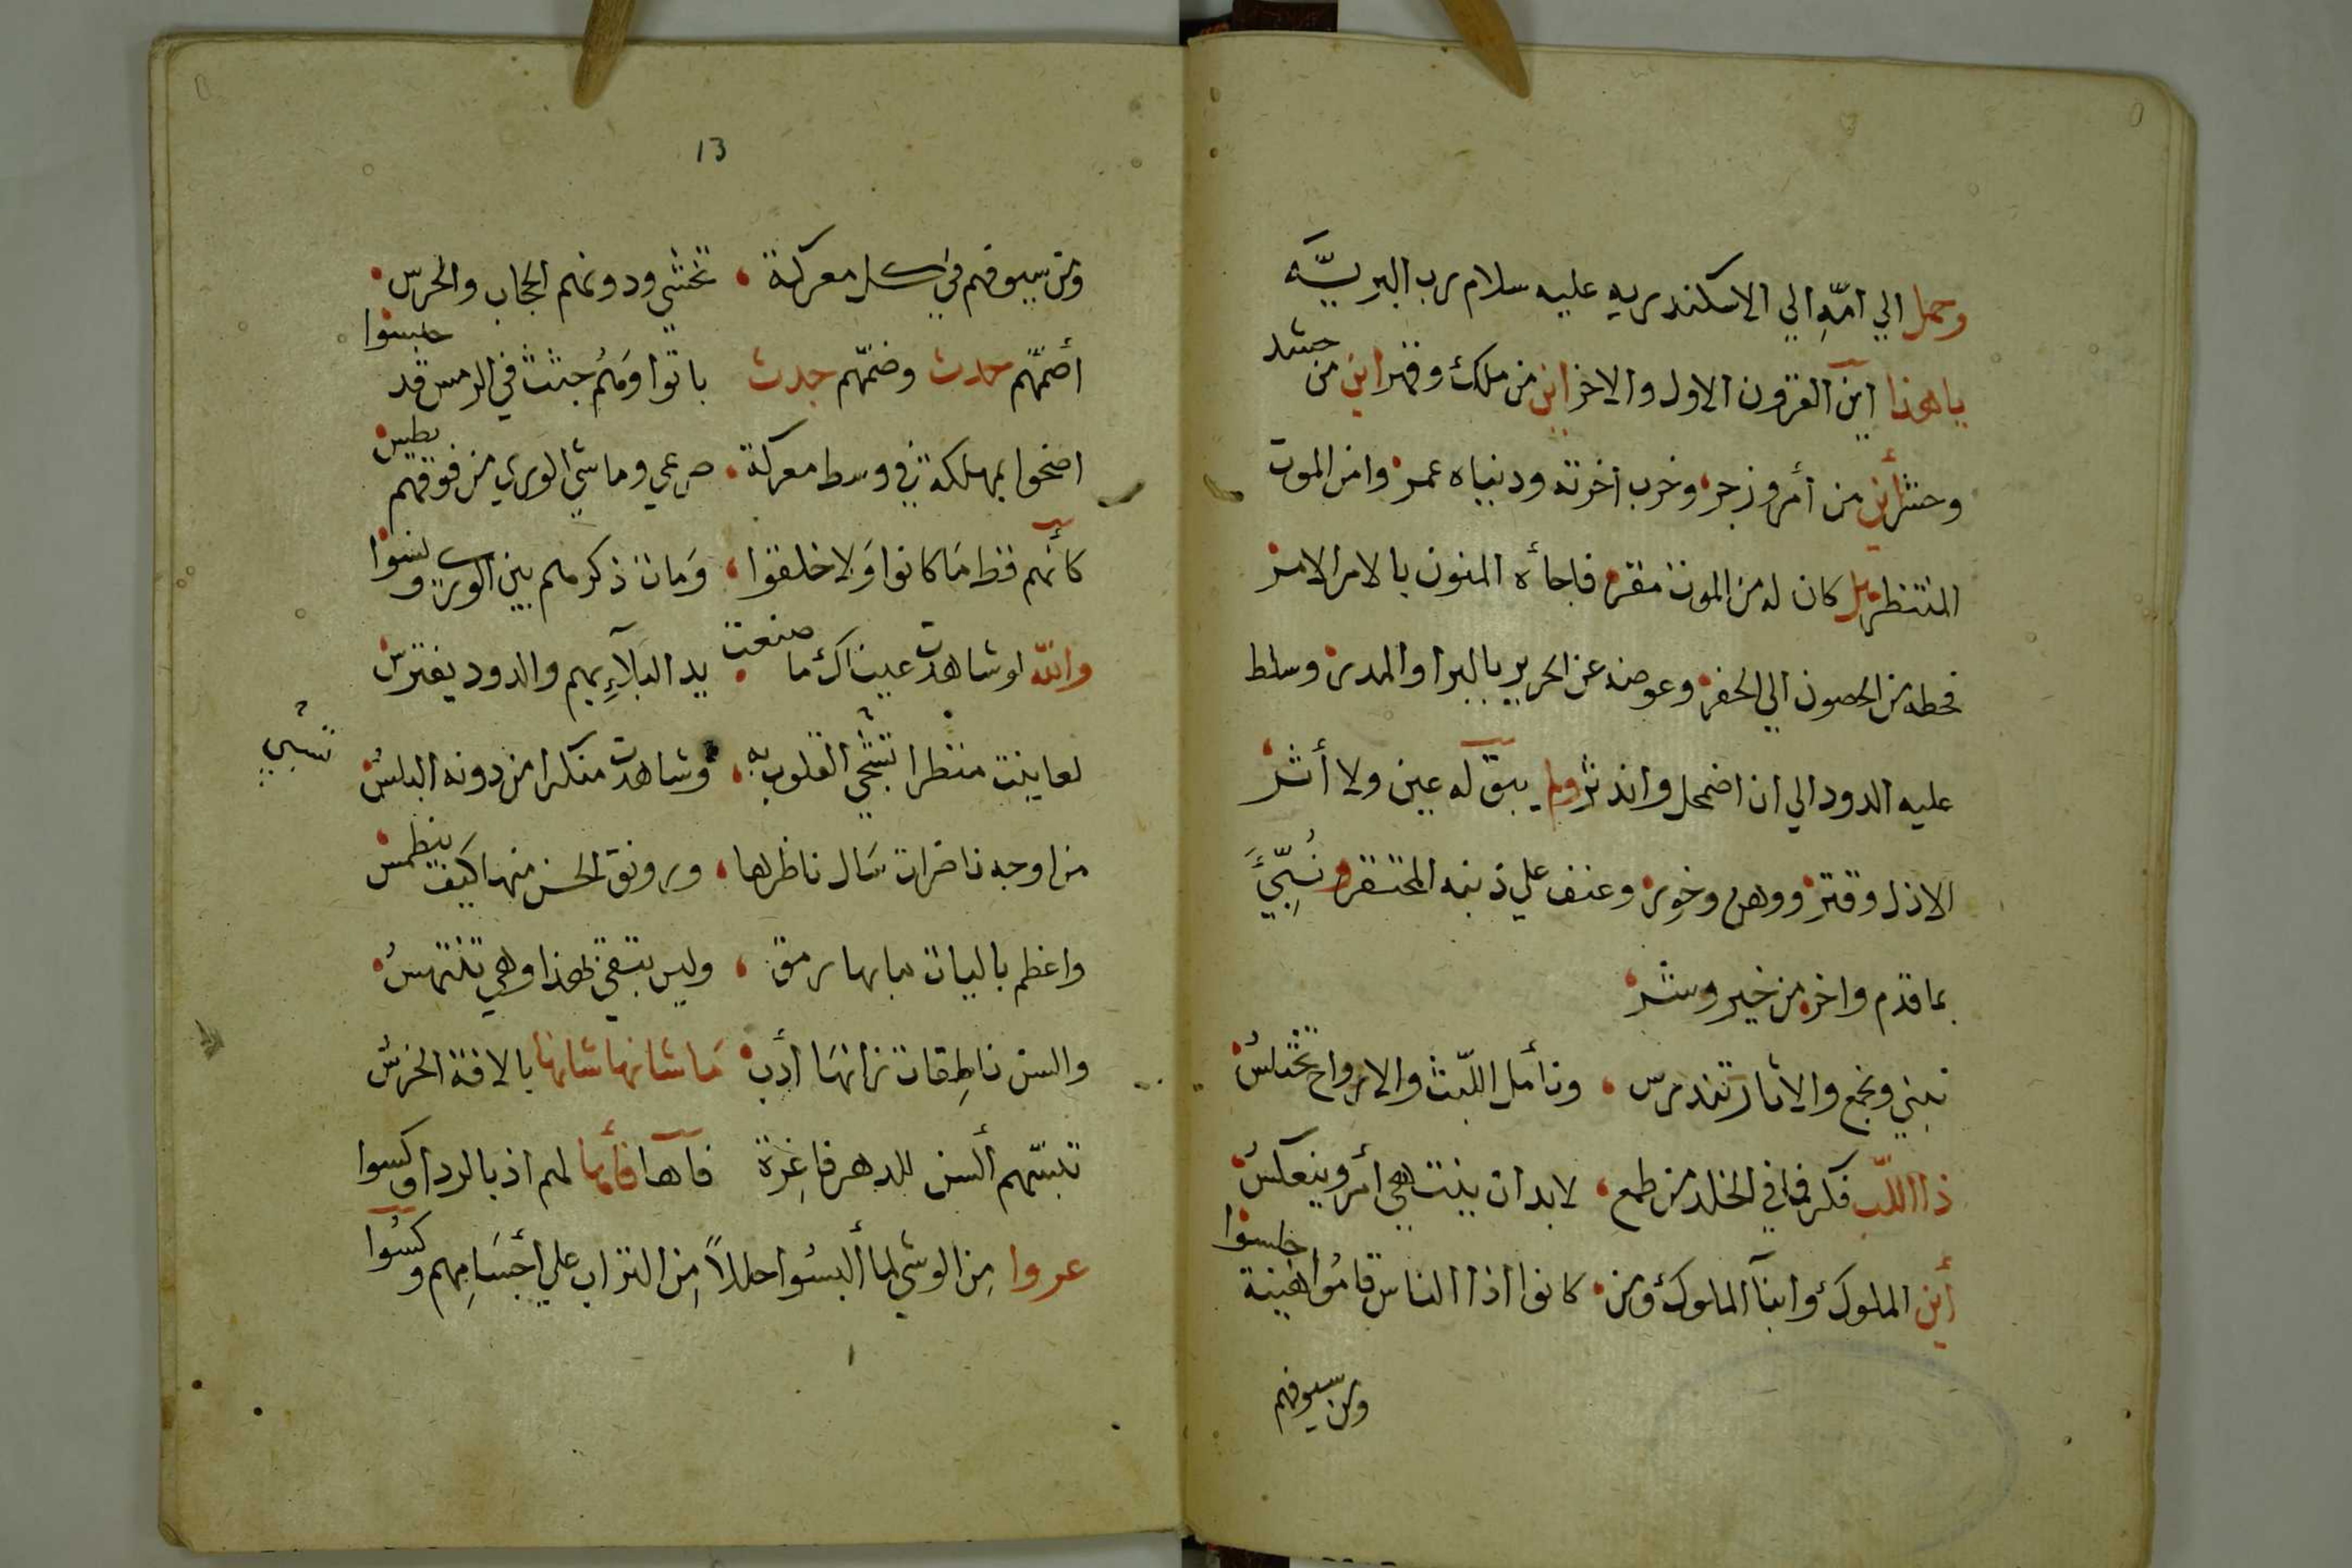 وحمل الي امّهِ الي الاسكندريه عليه سلام رب البريّه
ياهذا اين القرون الاول والاخر اين من ملك وقهر اين من حشد
وحشر أين من أمر وزجر وخرب اخرته ودنياه عمر وامن الموت
المنتظر بل كان له من الموت مقر فاجأه المنون بالامر الامر
فحطه من الحصون الي الحفر وعوضه عن الحرير بالبرا والمدر وسلط
عليه الدود الي ان اضمحل واندثر ولم يبق له عين ولا أثر
الا ذل وقتر ووهن وخور وعنف علي ذنبه المحتقر ونُبِّئَ
بما قدم واخر من خير وشر
نبني ونجمع والاثار تندرس وناأمل اللّبث والارواح تختلسُ
ذا اللبّ فكر فما في الخلد من طمع لابد ان ينتهي أمر وينعكسُ
أين الملوك وابنآ الملوك ومن كانوا اذا الناس قامُوا هيبة جلسوا
ومن سيوفهم
13
ومن سيوفهم في كل معركة تخشي ودونهم الحجاب والحرس
أضمّهم حدث وضمّهم جدث باتوا وهُم جثث في الرمس قد حبسوا
اضحوا بمهلكة في وسط معركة صرعي وماشي الوري من فوقهم يطس
كأنهم قط مَا كانوا وَلا خلقوا وَمات ذكرهم بين الوري ونسوا
والله لو شاهدت عيناك ما صنعت يد البلآءِ بهم والدود يفترس
لعاينت منظرا تشجي القلوب به وشاهدت منكرا من دونه البلسُ
تشجي
من اوجه ناضرات سَال ناظرها ورونق الحسن منها كيف ينطمس
واعظم باليات مابها رمق وليس تبقي لهذا وهي تنتهسُ
والسن ناطِقات زانهَا أدب مَا شانها شانها بالافة الخرسُ
تلبسّهم ألسن للدهر فاغِرة فآها فأها لهم اذ بالردا وكسوا
عروا مِن الوشي لما ألبسُوا حللاً مِن التراب علي أجسَامِهم وكسُوا